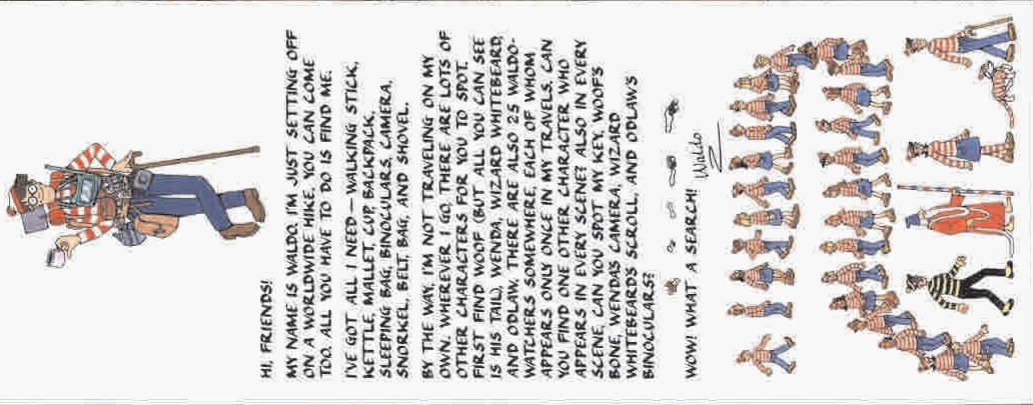 HI, FRIENDS!
MY NAME IS WALDO. I'M JUST SETTING OFF
ON A WORLDWIDE HIKE. YOU CAN COME
TOO. ALL YOU HAVE TO DO IS FIND ME.
I'VE GOT ALL I NEED — WALKING STICK,
KETTLE, MALLET, CUP, BACKPACK,
SLEEPING BAG, BINOCULARS, CAMERA,
SNORKEL, BELT, BAG, AND SHOVEL.
BY THE WAY, I'M NOT TRAVELING ON MY
OWN. WHEREVER I GO, THERE ARE LOTS OF
OTHER CHARACTERS FOR YOU TO SPOT.
FIRST FIND WOOF (BUT ALL YOU CAN SEE
IS HIS TAIL), WENDA, WIZARD WHITEBEARD,
AND ODLAW. THERE ARE ALSO 25 WALDO-
WATCHERS SOMEWHERE, EACH OF WHOM
APPEARS ONLY ONCE IN MY TRAVELS. CAN
YOU FIND ONE OTHER CHARACTER WHO
APPEARS IN EVERY SCENE? ALSO IN EVERY
SCENE, CAN YOU SPOT MY KEY, WOOF'S
BONE, WENDA'S CAMERA, WIZARD
WHITEBEARD'S SCROLL, AND ODLAW'S
BINOCULARS?
WOW! WHAT A SEARCH!
Waldo